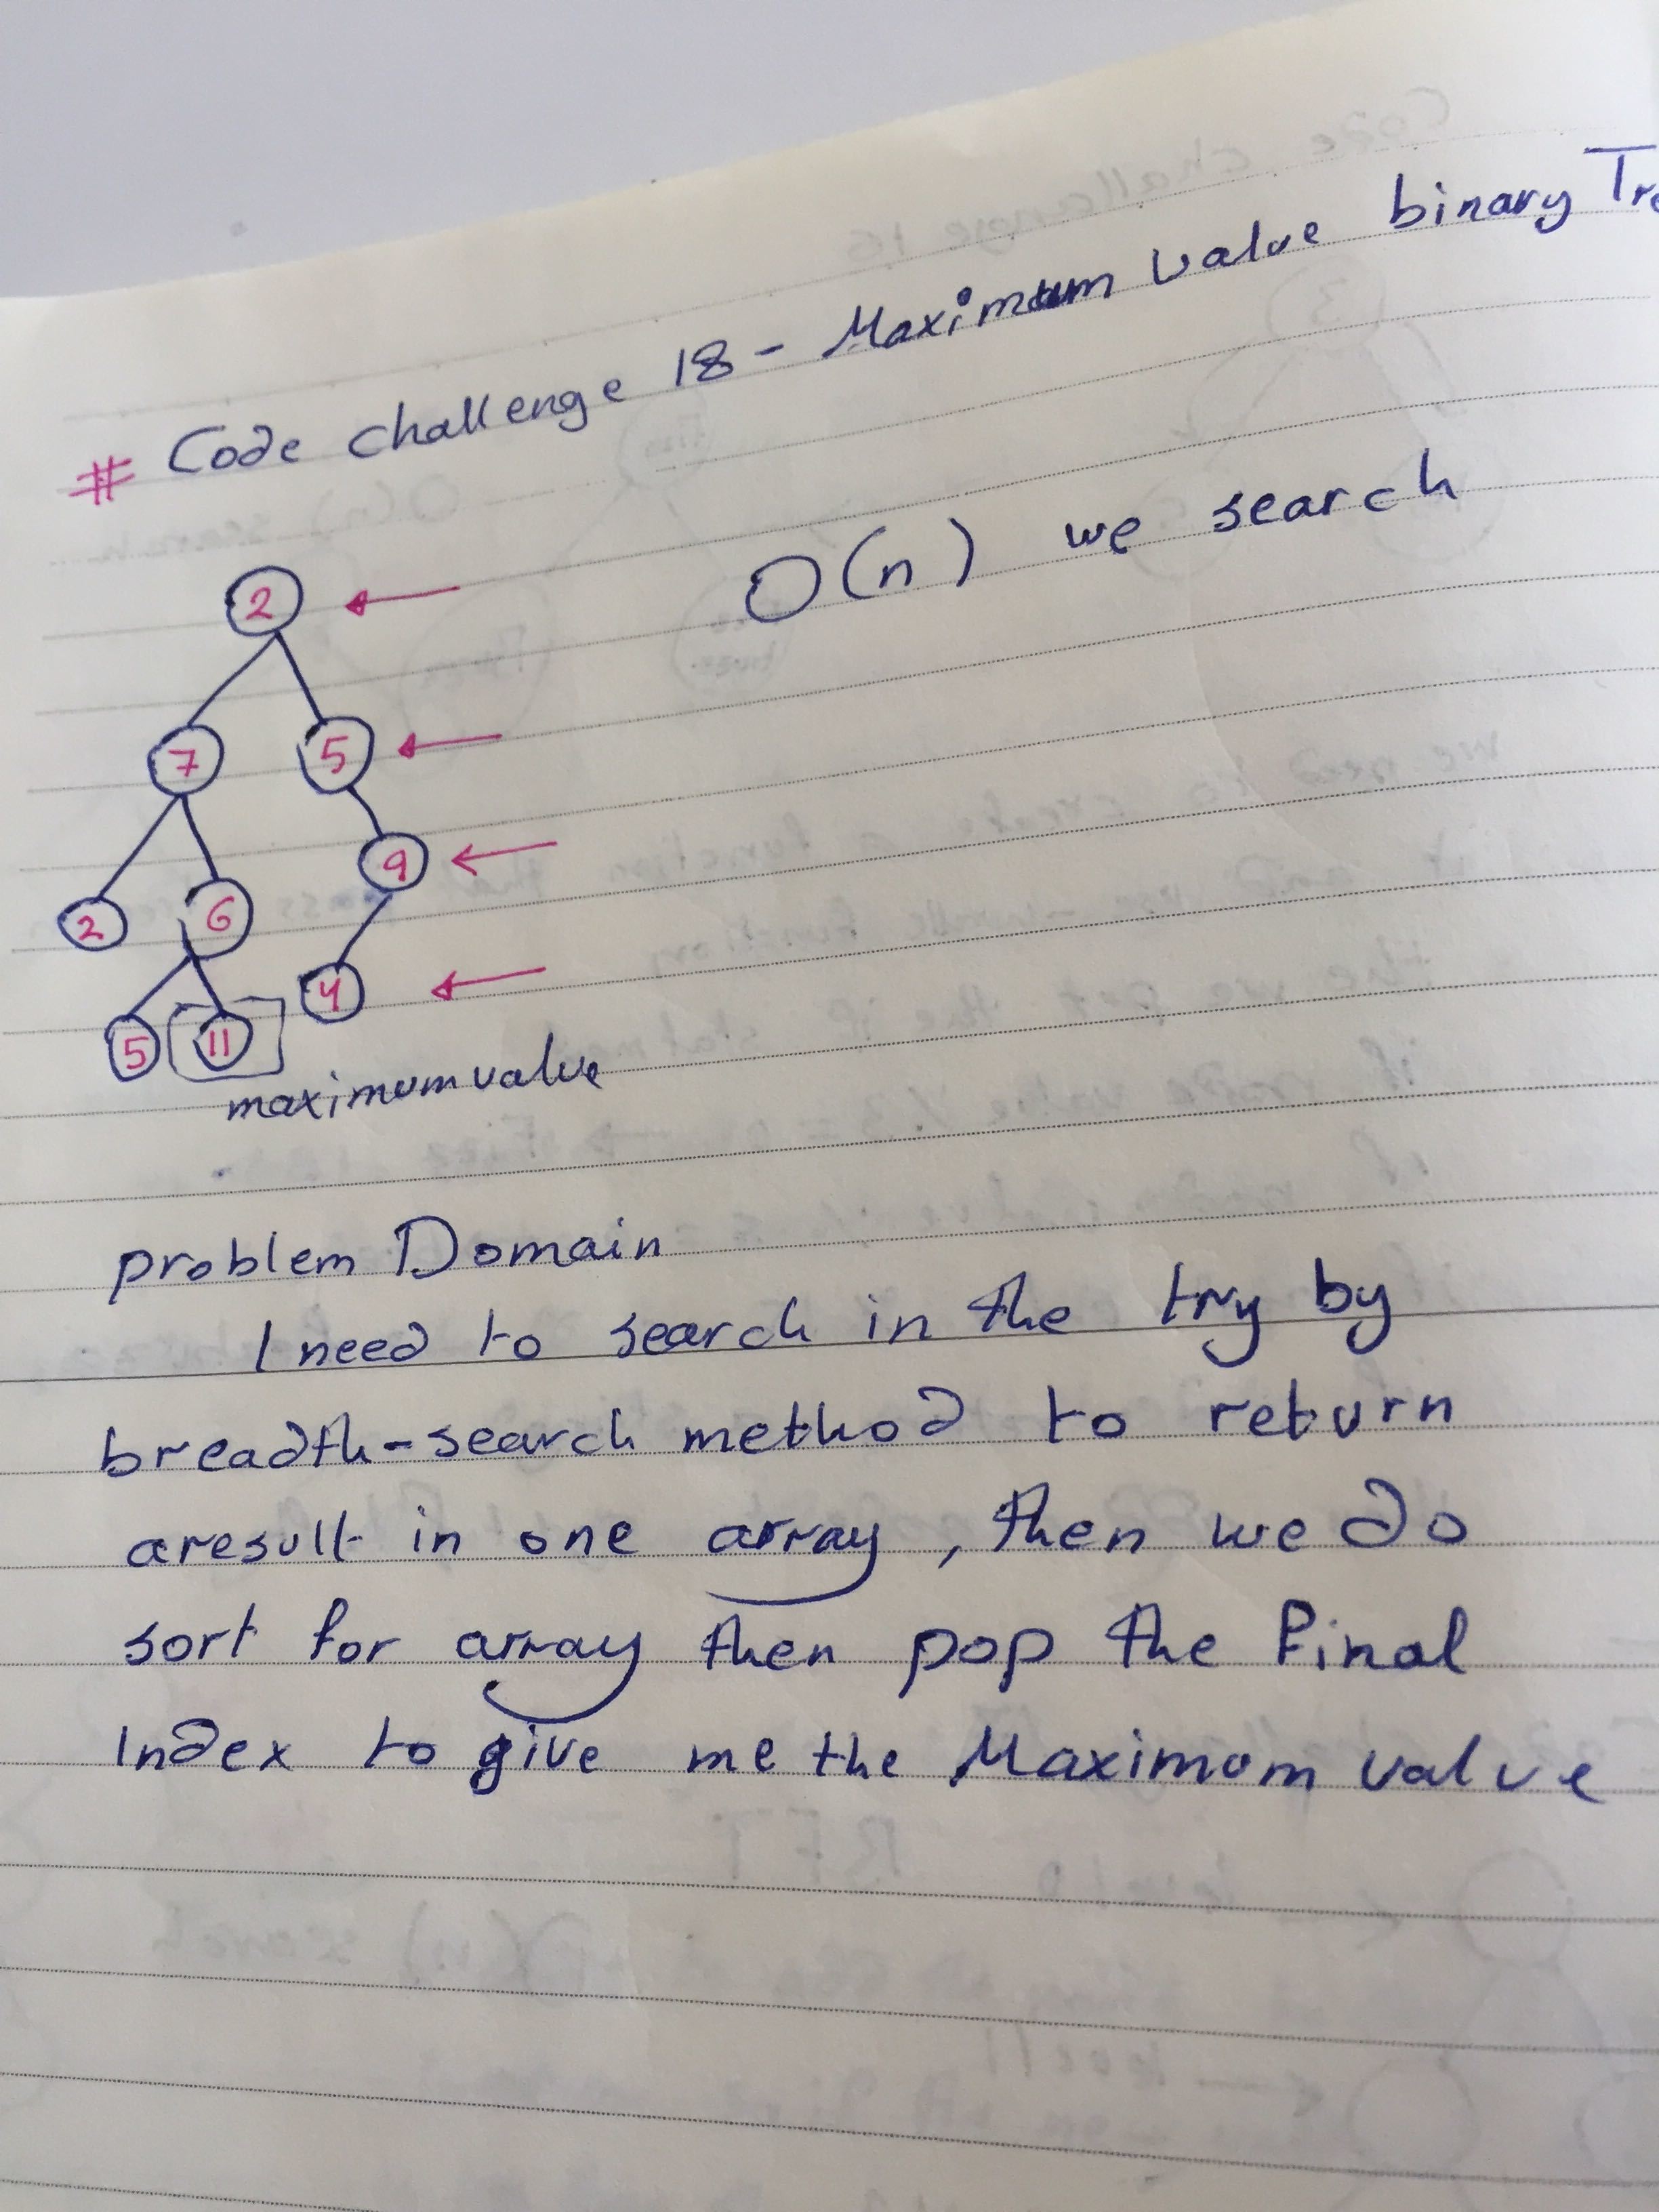 # Code challenge 18 - Maximum value binary Tre
O(n) we search
2
7 5
9
2 6
4
5 11
maximum value
problem Domain
I need to search in the try by
breadth-search method to return
aresult in one array, then we do
sort for array then pop the Final
Index to give me the Maximum value